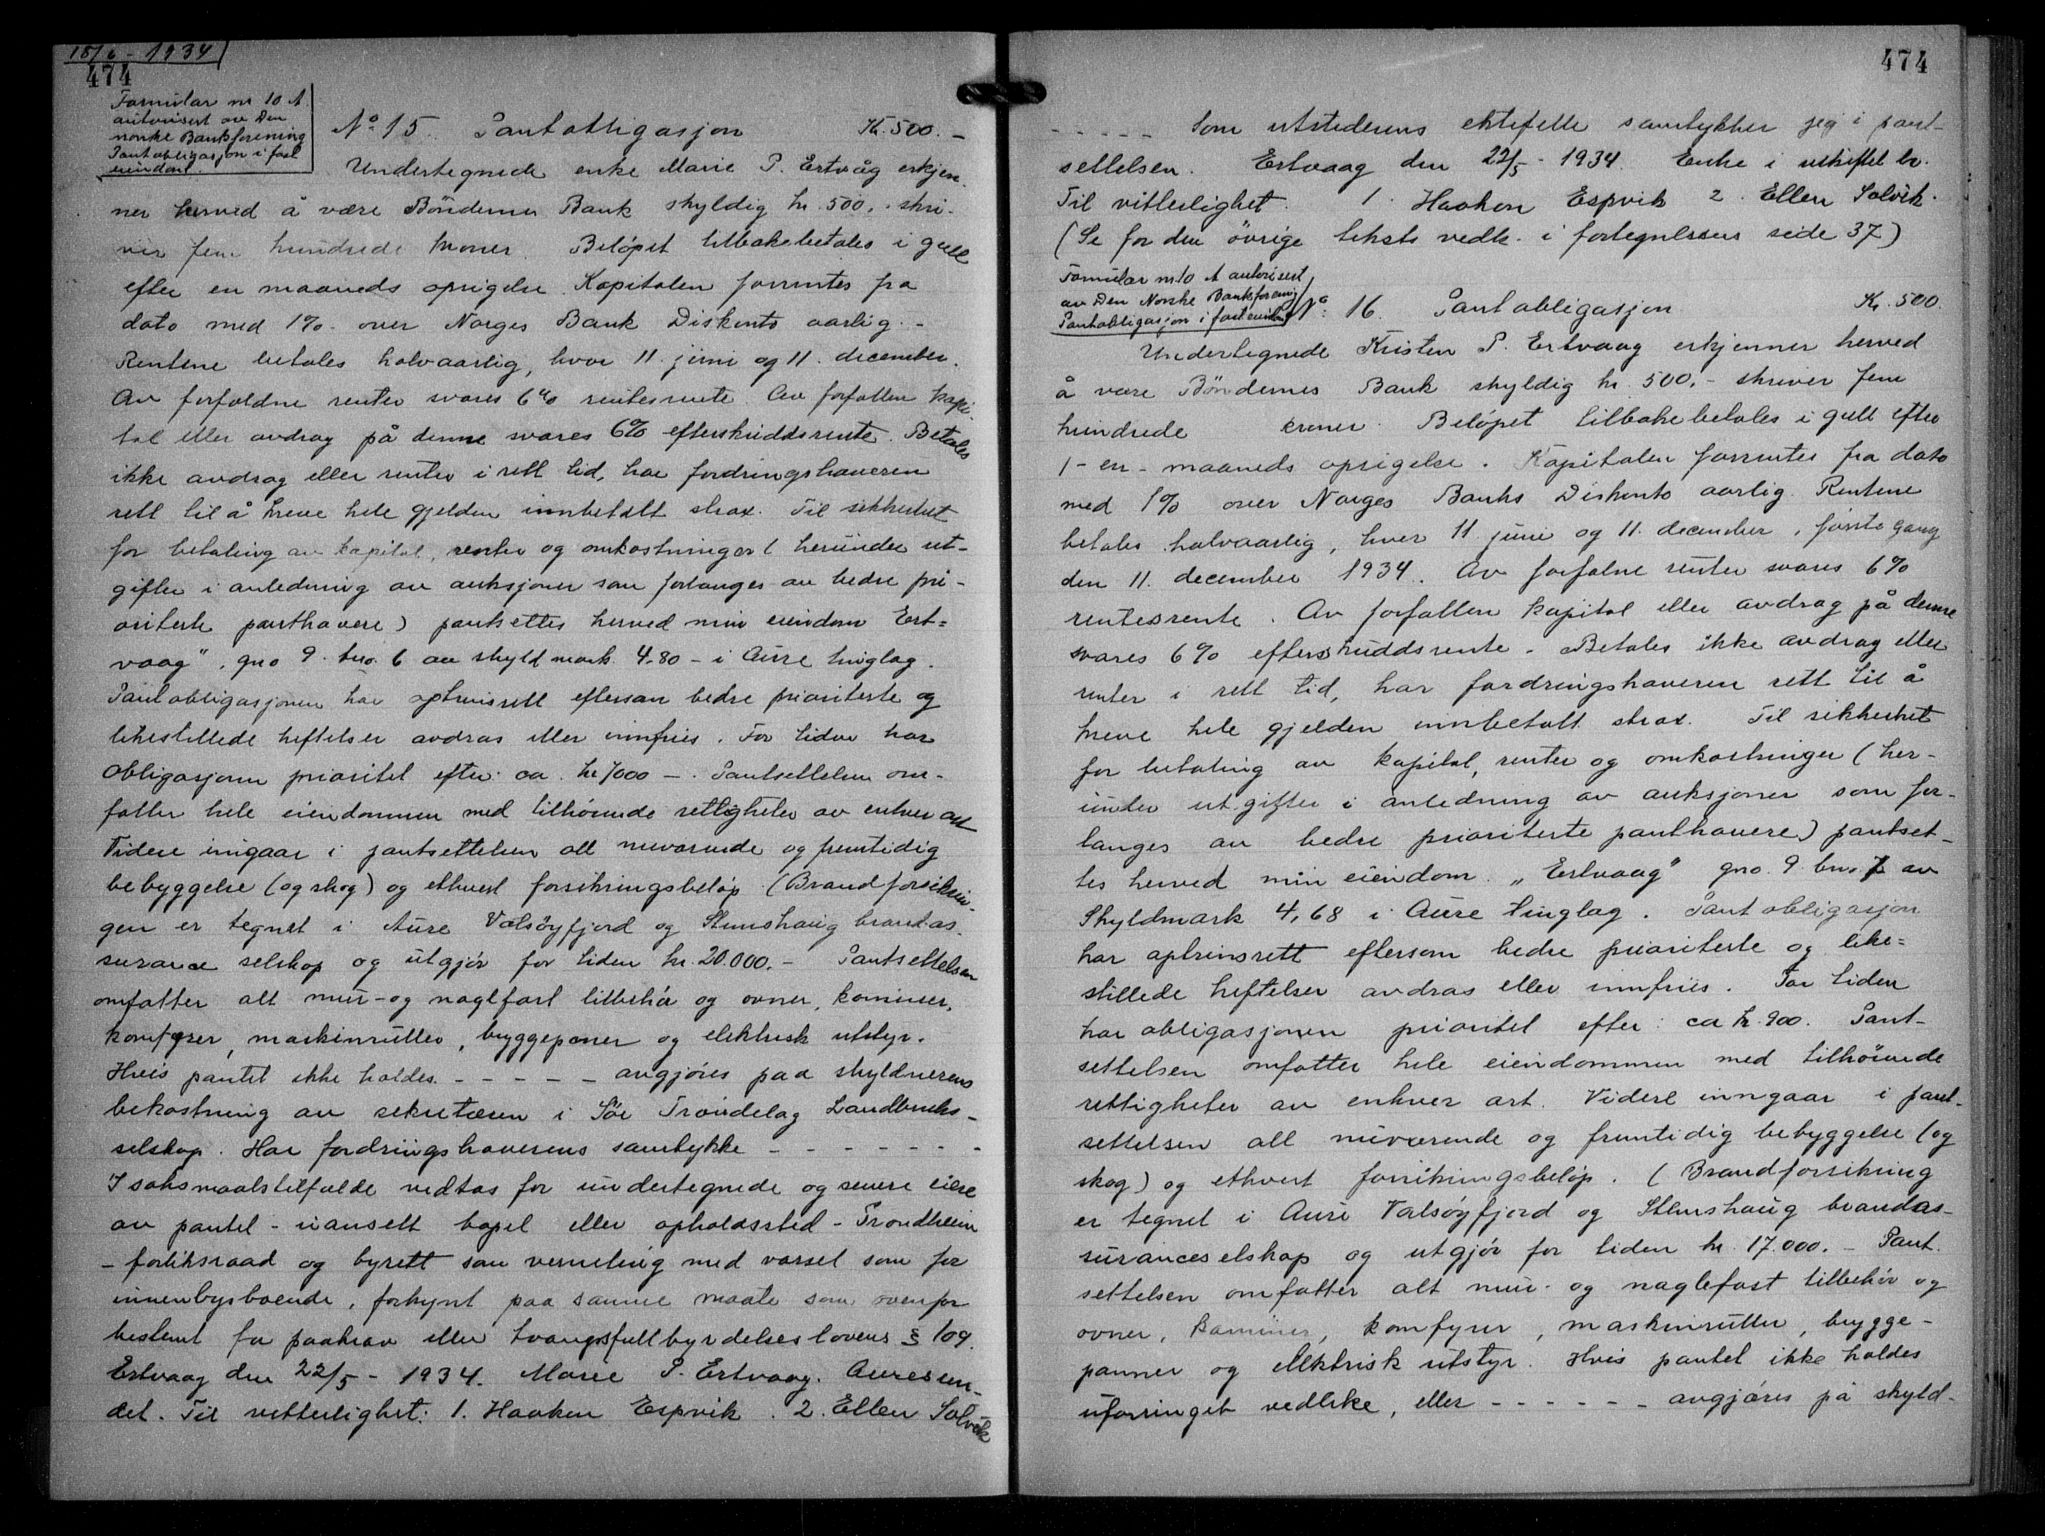 18/6 - 1934
474
Formular nr 10 A.
autorisert av Den
norske Bankforening
Pantobligasjon i fast
eiendom.
No 15. Pantobligasjon Kr. 500.-
Undertegnede enke Marie P. Ertvåg erkjen-
ner herved å være Bøndernes Bank skyldig kr. 500.- skri-
ver fem hundrede kroner. Beløpet tilbakebetales i gull
efter en maaneds opsigelse. Kapitalen forrentes fra
dato med 1% over Norges Bank Diskonto aarlig.-
Rentene betales halvaarlig, hver 11. juni og 11. december.
Av forfaldne renter svares 6% rentesrente. Av forfallen kapi-
tal eller avdrag på denne svares 6% efterskuddsrente. Betales
ikke avdrag eller renter i rett tid, har fordringshaveren
rett til å kreve hele gjelden innbetalt strax. Til sikkerhet
for betaling av kapital, renter og omkostninger (herunder ut-
gifter i anledning av auksjoner som forlanges av bedre pri-
oriterte panthavere) pantsettes herved min eiendom Ert=
vaag", gno 9 bno. 6 av skyld mark 4.80 - i Aure tinglag.
Pantobligasjonen har optrinsrett eftersom bedre prioriterte og
likestillede heftelser avdras eller innfries. For tiden har
obligasjonen prioritet efter: ca. kr 7000 -. Pantsettelsen om-
fatter hele eiendommen med tilhørende rettigheter av enhver art
Videre inngaar i pantsettelsen all nuværende og fremtidig
bebyggelse (og skog) og ethvert forsikringsbeløp. (Brandforsikrin-
gen er tegnet i Aure Valsøyfjord og Stemshaug brandas-
surance selskap og utgjør for tiden kr. 20.000.- Pantsettelsen
omfatter alt mur- og naglefast tilbehør og ovner, kaminer,
komfyrer, maskinruller, bryggepaner og elektrisk utstyr.
Hvis pantet ikke holdes - - - - - avgjøres paa skyldnerens
bekostning av sekretæren i Sør Trøndelag Landbruks-
selskap. Har fordringshaverens samtykke - - - - - - -
I søksmaalstilfælde vedtas for undertegnede og senere eiere
av pantet - uansett bopel eller opholdssted - Trondheim
- forliksraad og byrett som verneting med varsel som for
innenbysboende, forkynt paa samme maate som ovenfor
bestemt for paakrav eller tvangsfullbyrdelseslovens § 109.
Ertvaag den 22/5 - 1934. Marie P. Ertvaag. Auresun-
det. Til vitterlighet: 1. Haaken Espvik. 2. Ellen Solvik
474
- - - - - Som utstederens ektefelle samtykker jeg i pant-
settelsen. Ertvaag den 22/5 - 1934. Enke i uskiftet bo.
Til vitterlighet. 1. Haakon Espvik 2. Ellen Solvik.
(Se for den øvrige teksts vedk. i fortegnelsens side 37)
Formular nr. 10 A autorisert
av Den Norske Bankforening
Pantobligasjon i fast eiendom
No: 16. Pantobligasjon Kr. 500.
Undertegnede Kristen P. Ertvaag erkjenner herved
å være Bøndernes Bank skyldig kr. 500.- skriver fem
hundrede kroner. Beløpet tilbakebetales i gull efter
1 - en - maaneds opsigelse. Kapitalen forrentes fra dato
med 1% over Norges Banks Diskonto aarlig. Rentene
betales halvaarlig, hver 11 juni og 11. december, første gang
den 11. december 1934. Av forfalne renter svares 6%
rentesrente. Av forfallen kapital eller avdrag på denne
svares 6% efterskuddsrente. Betales ikke avdrag eller
renter i rett tid, har fordringshaveren rett til å
kreve hele gjelden innbetalt strax. Til sikkerhet
for betaling av kapital, renter og omkostninger (her-
under utgifter i anledning av auksjoner som for-
langes av bedre prioriterte panthavere) pantset-
tes herved min eiendom. „Ertvaag" gno. 9 bno. 7 av
Skyldmark 4,68 i Aure tinglag. Pantobligasjon
har optrinsrett eftersom bedre prioriterte og like=
stillede heftelser avdras eller innfries. For tiden
har obligasjonen prioritet efter: ca kr. 900. Pant-
settelsen omfatter hele eiendommen med tilhørende
rettigheter av enhver art. Videre inngaar i pant-
settelsen all nuværende og fremtidig bebyggelse (og
skog) og ethvert forsikringsbeløp. (Brandforsikring
er tegnet i Aure Valsøyfjord og Stemshaug brandas-
suranceselskap og utgjør for tiden kr. 17.000.- Pant-
settelsen omfatter alt mur- og naglefast tilbehør og
ovner, kaminer, komfyrer, maskinruller, brygge-
panner og elektrisk utstyr. Hvis pantet ikke holdes
uforringet vedlike, eller - - - - - - avgjøres på skyld-